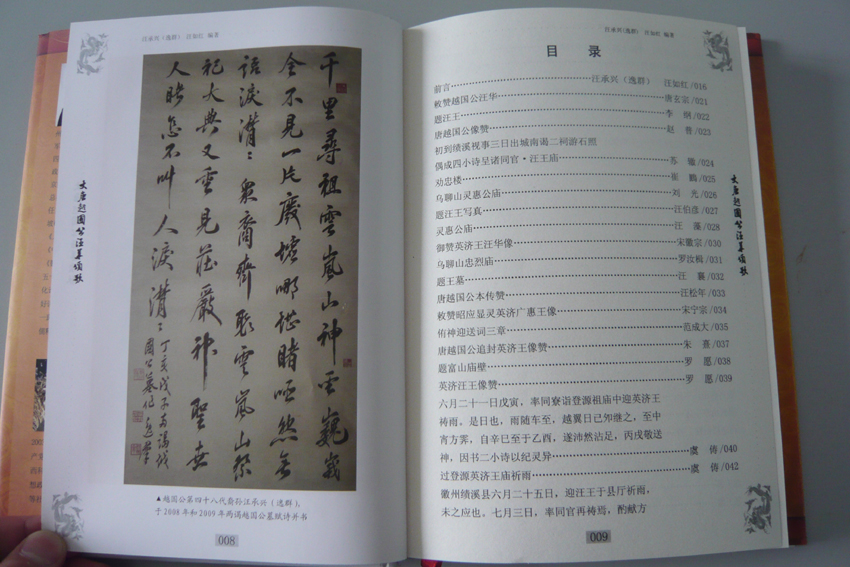 汪承兴（逸群） 汪如红 编著
大唐越国公汪华颂歌
千里尋祖雲嵐山神
巍峩
全不見一片廢墟哪堪睹哑然无
語淚潸潸衆裔齊聚雲嵐山祭
祀大典又重見莊嚴神聖無
人時怎不叫人淚潸潸
丁亥戊子两谒
国公墓作
▲越国公第四十八代裔孙汪承兴（逸群），
于2008年和2009年两谒越国公墓赋诗并书
008
汪承兴（逸群） 汪如红 编著
目 录
前言……汪承兴（逸群） 汪如红/016
敕赞越国公汪华……唐玄宗/021
题汪王……李 纲/022
唐越国公像赞……赵 普/023
初到绩溪视事三日出城南谒二祠游石照
偶成四小诗呈诸同官·汪王庙……苏 辙/024
劝忠楼……崔 鶠/025
乌聊山灵惠公庙……刘 光/026
题汪王写真……汪伯彦/027
灵惠公庙……汪 藻/028
御赞英济王汪华像……宋徽宗/030
乌聊山忠烈庙……罗汝楫/031
题王墓……汪 襄/032
唐越国公本传赞……汪松年/033
敕赞昭应显灵英济广惠王像……宋宁宗/034
侑神迎送词三章……范成大/035
唐越国公追封英济王像赞……朱 熹/037
题富山庙壁……罗 愿/038
英济汪王像赞……罗 愿/039
六月二十一日戊寅，率同寮诣登源祖庙中迎英济王
祷雨，是日也，雨随车至，越翼日已卯继之，至中
宵方霁，自辛巳至于乙酉，遂沛然沾足，丙戌敬送
神，因书二小诗以纪灵异……虞 俦/040
过登源英济王庙祈雨……虞 俦/042
徽州绩溪县六月二十五日，迎汪王于县厅祈雨，
未之应也。七月三日，率同官再祷焉，酌献方
大唐越国公汪华颂歌
009